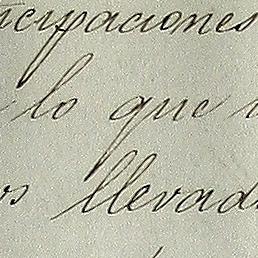 cipaciones
lo que
os llevad